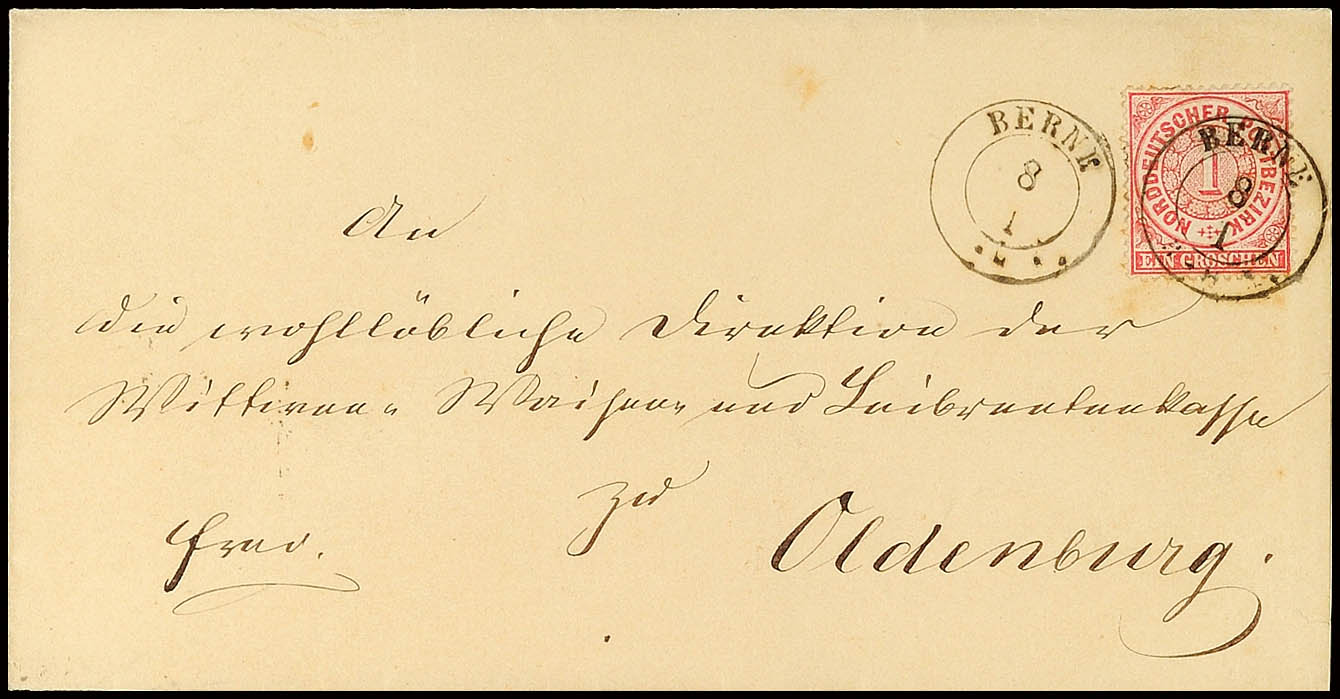 BERNE
8
1
NORDDEUTSCHER POSTBEZIRK
1
EIN GROSCHEN
BERNE
8
1
An
die wohllöbliche Direktion der
Wittwen- Waisen- und Leibrentenkasse
zu
Oldenburg.
frco.